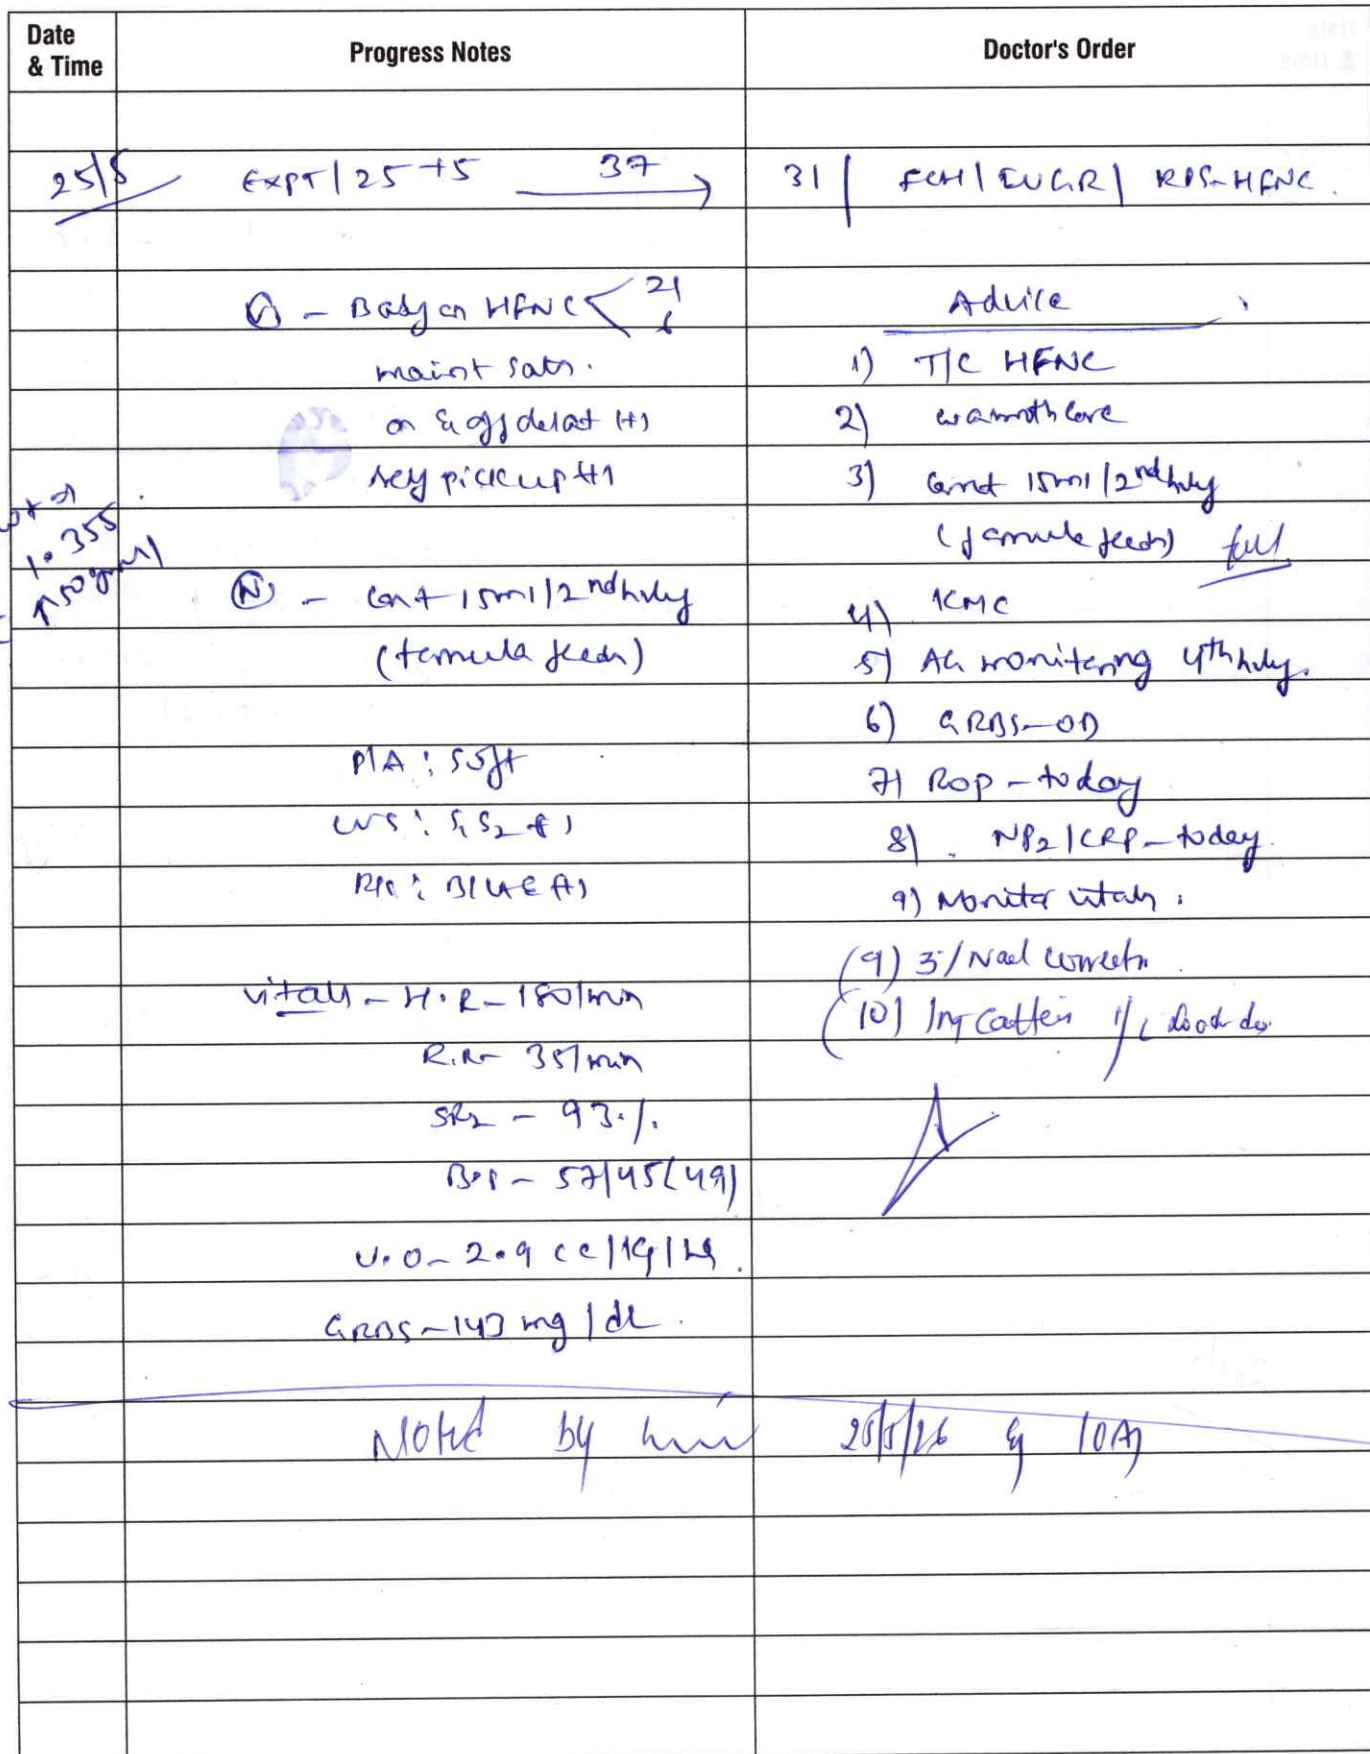 Date & Time Progress Notes Doctor's Order
25/5 EXPT / 25 +5 37 → 31 / / EUGR / RDS-HFNC.
- Baby on HFNC < 21
6
maint sats.
on & off desat (+)
pick up (+)
1.355
50gm
(N) - Cont 15ml/2nd hrly
(formula feeds)
P/A : soft
CVS : S1 S2 (+)
R/S : B/L AE (+)
Vitals - H.R - 180/min
R.R - 35/min
SPO2 - 93 %.
B.P - 57/45 (49)
U.O - 2.9 cc/kg/hr.
GRBS - 143 mg/dl.
Advice
1) T/C HFNC
2) warmth care
3) Cont 15ml/2nd hrly
(formula feeds) full
4) KMC
5) AG monitoring 4th hrly.
6) GRBS - OD
7) ROP - today
8) NP2/CRP - today.
9) Monitor vitals.
(9) 3% Nacl correctn
(10) Inj
Noted by 25/5/26